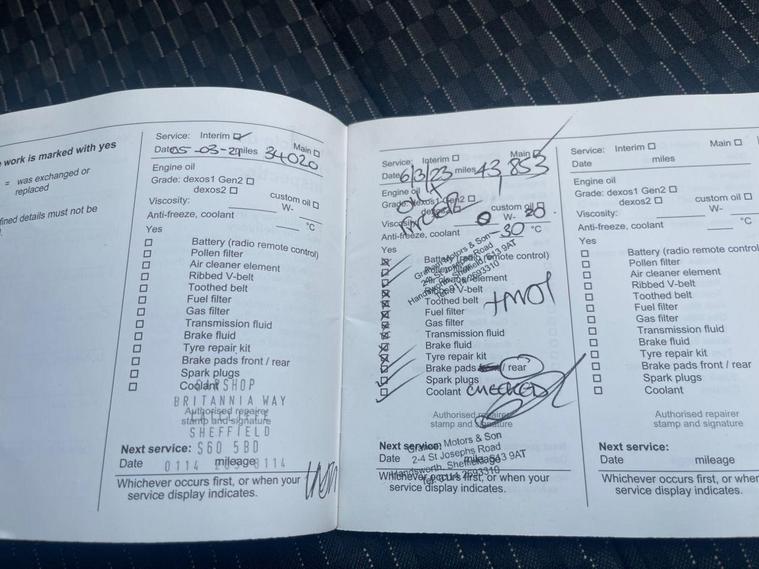 work is marked with yes
= was exchanged or
replaced
fined details must not be
Service: Interim ☑
Main ☐
Date 05-03-21 miles 34020
Engine oil
Grade: dexos1 Gen2 ☐
dexos2 ☐
custom oil ☐
Viscosity: W-
Anti-freeze, coolant °C
Yes
☐ Battery (radio remote control)
☐ Pollen filter
☐ Air cleaner element
☐ Ribbed V-belt
☐ Toothed belt
☐ Fuel filter
☐ Gas filter
☐ Transmission fluid
☐ Brake fluid
☐ Tyre repair kit
☐ Brake pads front / rear
☐ Spark plugs
☐ Coolant
BRITANNIA WAY
Authorised repairer
stamp and signature
SHEFFIELD
Next service: S60 5BD
Date mileage
0114
Whichever occurs first, or when your
service display indicates.
Service: Interim ☐
Main ☑
Date 6/3/23 miles 43,853
Engine oil
Grade: dexos1 Gen2 ☐
custom oil ☐
Viscosity: 0 W- 20
Anti-freeze, coolant -30 °C
Yes
Battery (radio remote control)
Motors & Son
Toothed belt
+MOT
Fuel filter
Gas filter
Transmission fluid
Brake fluid
Tyre repair kit
Brake pads / rear
Spark plugs
Coolant CHECKED
Authorised repairer
stamp and signature
Next service:
Motors & Son
Date mileage
2-4 St Josephs Road
Handsworth, Sheffield S13 9AT
Whichever occurs first, or when your
service display indicates.
Service: Interim ☐
Main ☐
Date miles
Engine oil
Grade: dexos1 Gen2 ☐
dexos2 ☐
custom oil ☐
Viscosity: W-
Anti-freeze, coolant °C
Yes
☐ Battery (radio remote control)
☐ Pollen filter
☐ Air cleaner element
☐ Ribbed V-belt
☐ Toothed belt
☐ Fuel filter
☐ Gas filter
☐ Transmission fluid
☐ Brake fluid
☐ Tyre repair kit
☐ Brake pads front / rear
☐ Spark plugs
☐ Coolant
Authorised repairer
stamp and signature
Next service:
Date mileage
Whichever occurs first, or when your
service display indicates.